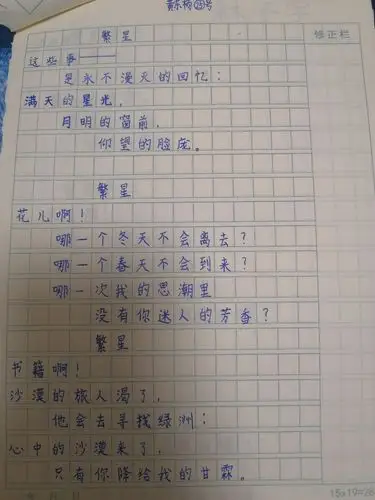 黄东桥 25号
繁星
修正栏
这些事——
是永不漫灭的回忆：
满天的星光，
月明的窗前，
仰望的脸庞。
繁星
花儿啊！
哪一个冬天不会离去？
哪一个春天不会到来？
哪一次我的思潮里
没有你迷人的芳香？
繁星
书籍啊！
沙漠的旅人渴了，
他会去寻找绿洲：
心中的沙漠来了，
只有你降给我的甘霖。